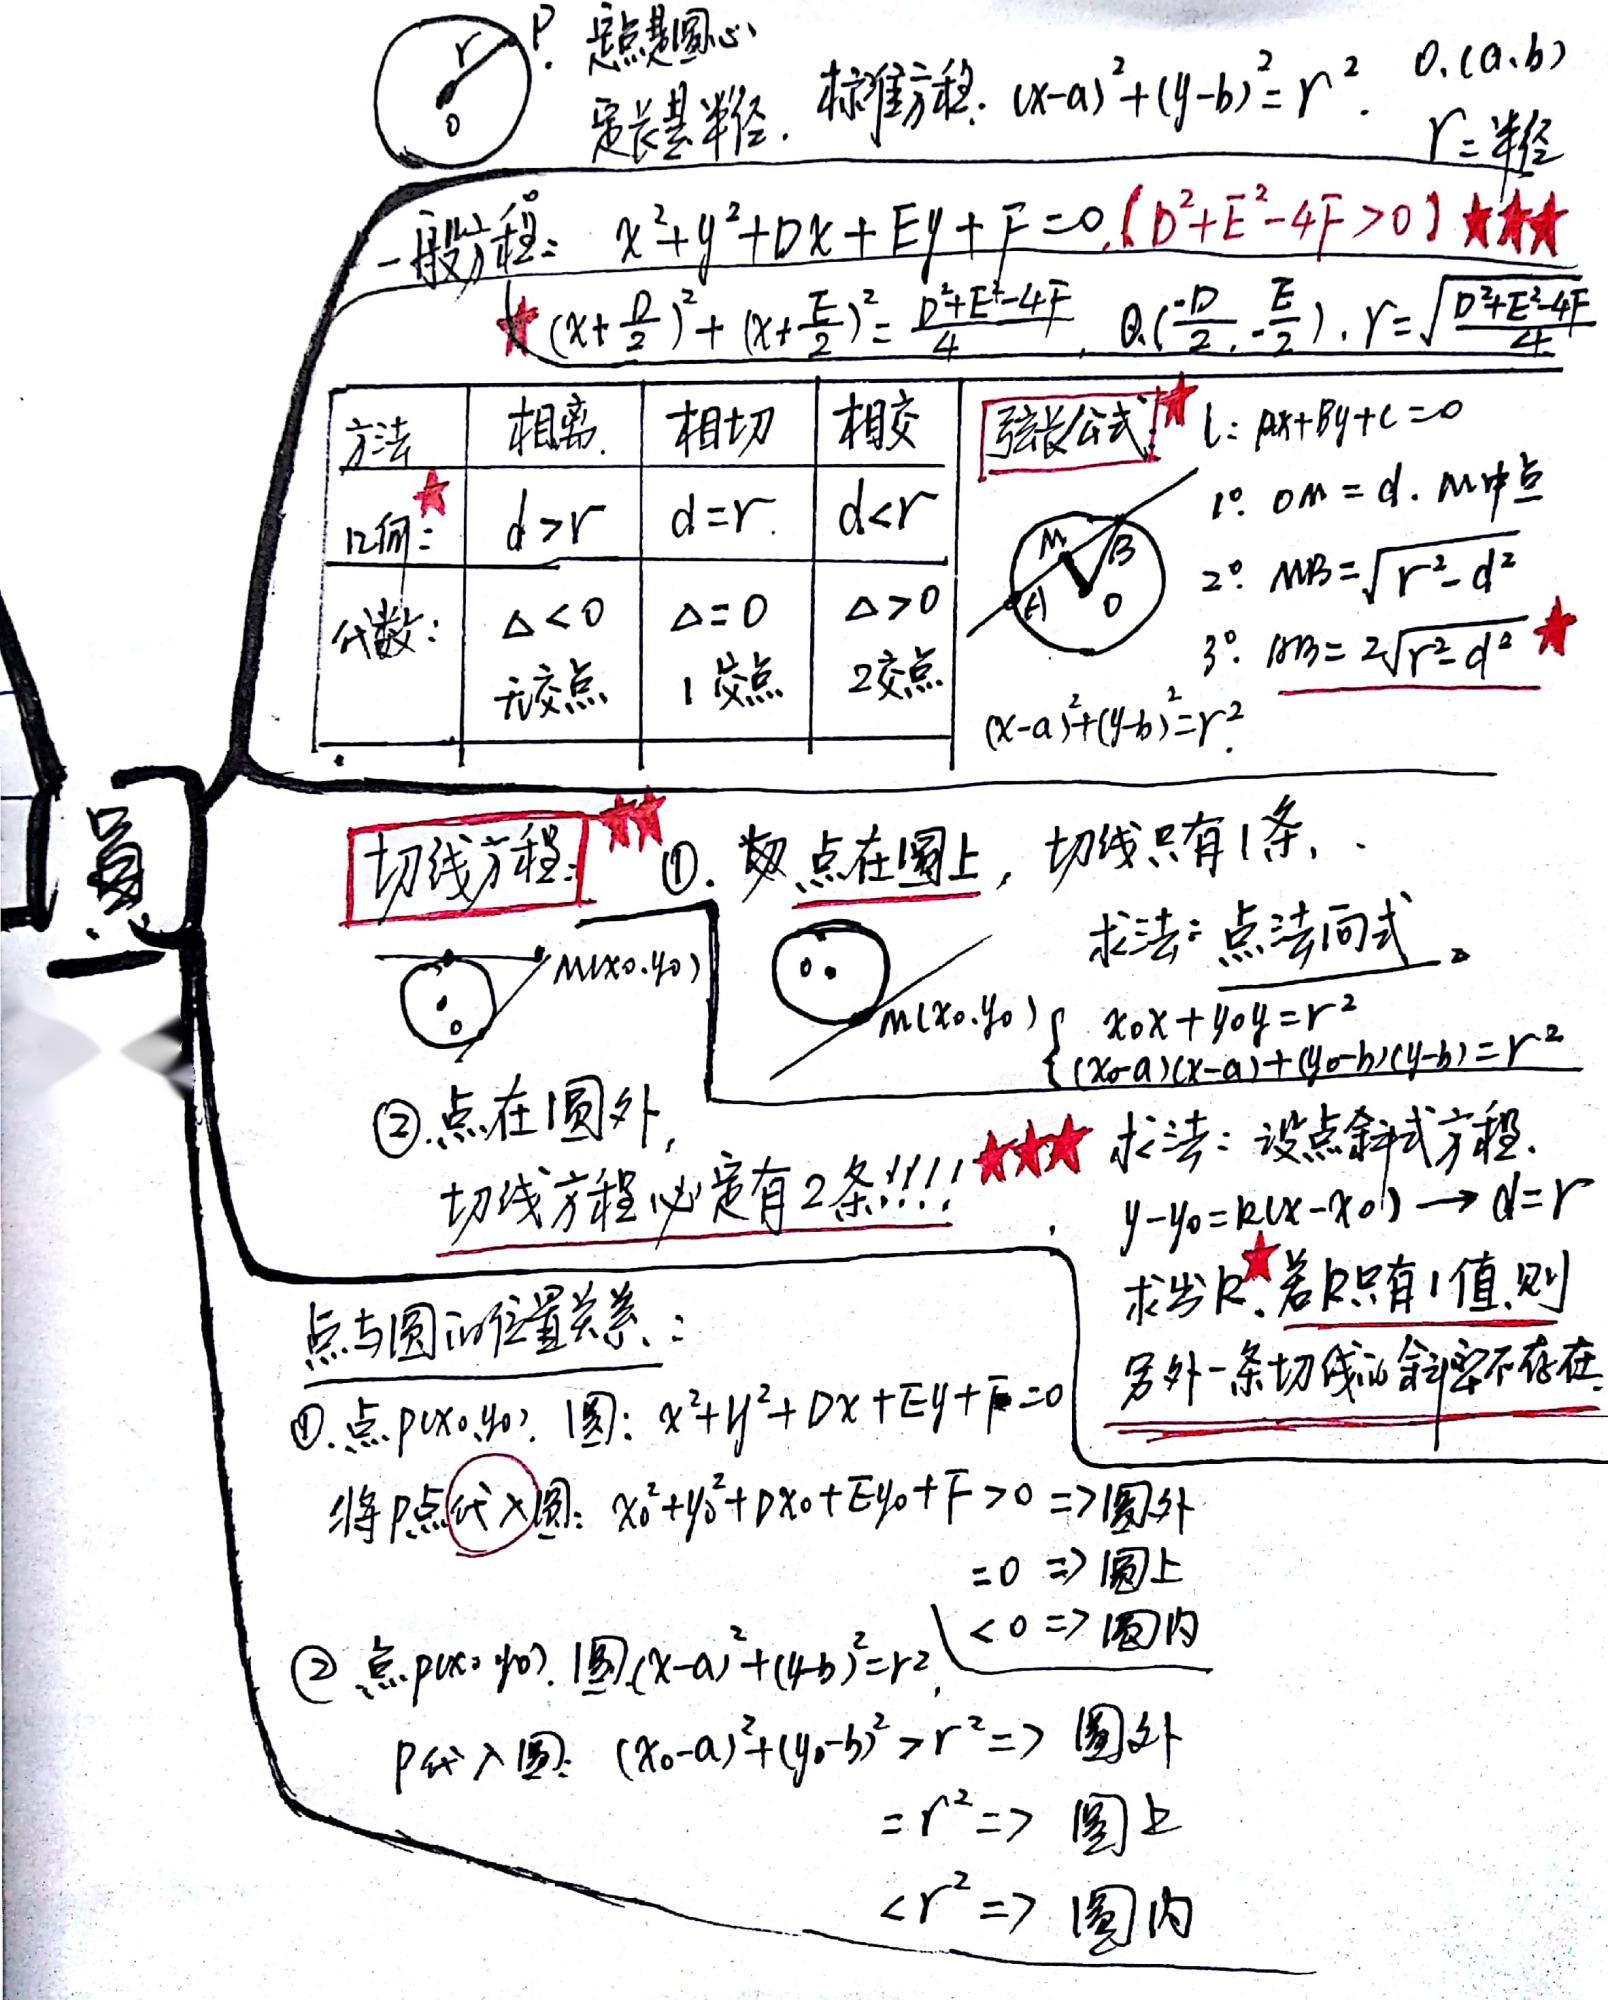 r P. 定点是圆心
O 定长是半径. 标准方程: (x-a)²+(y-b)²=r². O.(a.b)
r=半径
一般方程: x²+y²+Dx+Ey+F=0.(D²+E²-4F>0)
(x+D/2)²+(x+E/2)²=(D²+E²-4F)/4, O.(-D/2.-E/2). r=√((D²+E²-4F)/4)
方法 相离. 相切 相交
几何: d>r d=r. d<r
代数: Δ<0 Δ=0 Δ>0
无交点 1交点 2交点
弦长公式: l: Ax+By+C=0
1°. OM=d. M中点
M B
A O
2°. MB=√(r²-d²)
3°. AB=2√(r²-d²)
(x-a)²+(y-b)²=r².
圆
切线方程: ①. 点在圆上, 切线只有1条.
求法: 点法向式.
M(x0.y0)
O
O
M(x0.y0)
{ x0x+y0y=r²
(x0-a)(x-a)+(y0-b)(y-b)=r²
②.点在圆外,
切线方程必定有2条!!!!
求法: 设点斜式方程.
y-y0=k(x-x0)→d=r
求出k. 若k只有1值,则
另外一条切线的斜率不存在.
点与圆的位置关系:
①.点P(x0.y0). 圆: x²+y²+Dx+Ey+F=0
将P点代入圆: x0²+y0²+Dx0+Ey0+F>0 => 圆外
=0 => 圆上
<0 => 圆内
② 点P(x0 y0). 圆(x-a)²+(y-b)²=r².
P代入圆: (x0-a)²+(y0-b)²>r² => 圆外
=r² => 圆上
<r² => 圆内